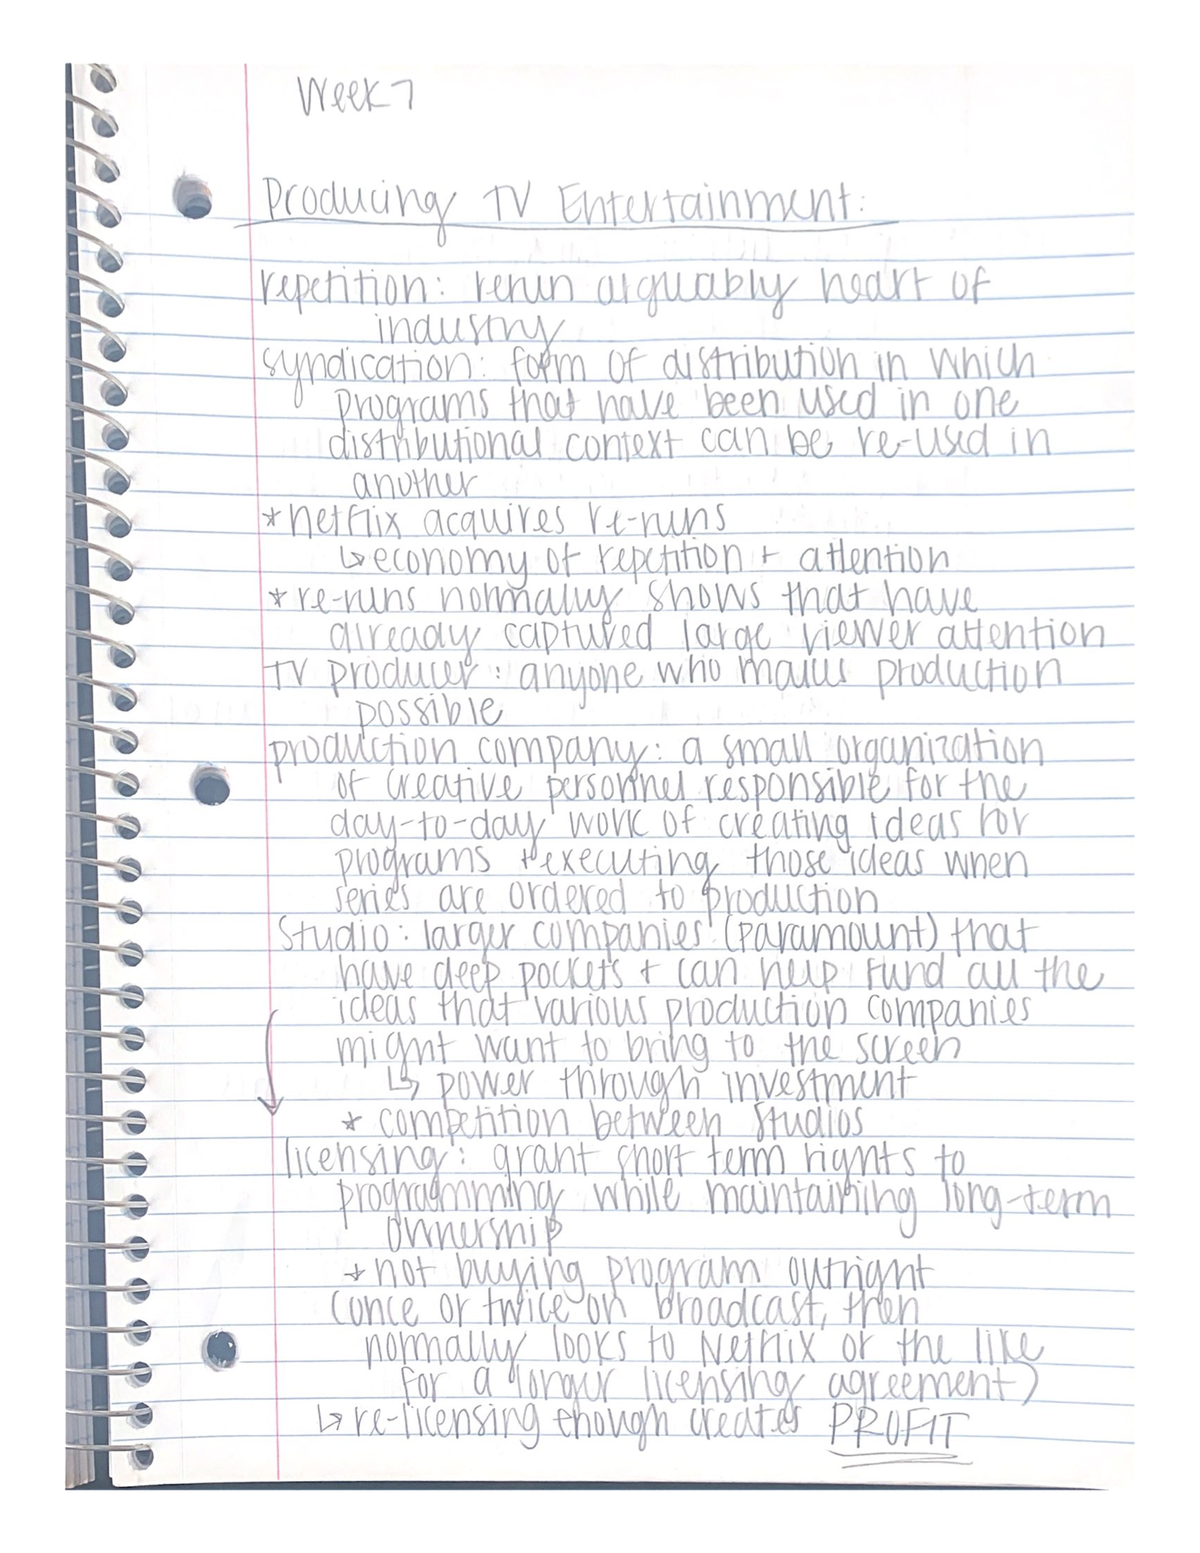 Week 7
Producing TV Entertainment:
repetition: rerun arguably heart of
industry
syndication: form of distribution in which
programs that have been used in one
distributional context can be re-used in
another
*netflix acquires re-runs
↳economy of repetition + attention
*re-runs normally shows that have
already captured large viewer attention
TV producer: anyone who makes production
possible
production company: a small organization
of creative personnel responsible for the
day-to-day work of creating ideas for
programs + executing those ideas when
series are ordered to production
Studio: larger companies (paramount) that
have deep pockets + can help fund all the
ideas that various production companies
might want to bring to the screen
↳ power through investment
* competition between studios
licensing: grant short term rights to
programming while maintaining long-term
ownership
*not buying program outright
(once or twice on broadcast, then
normally looks to Netflix or the like
for a longer licensing agreement)
↳re-licensing enough creates PROFIT